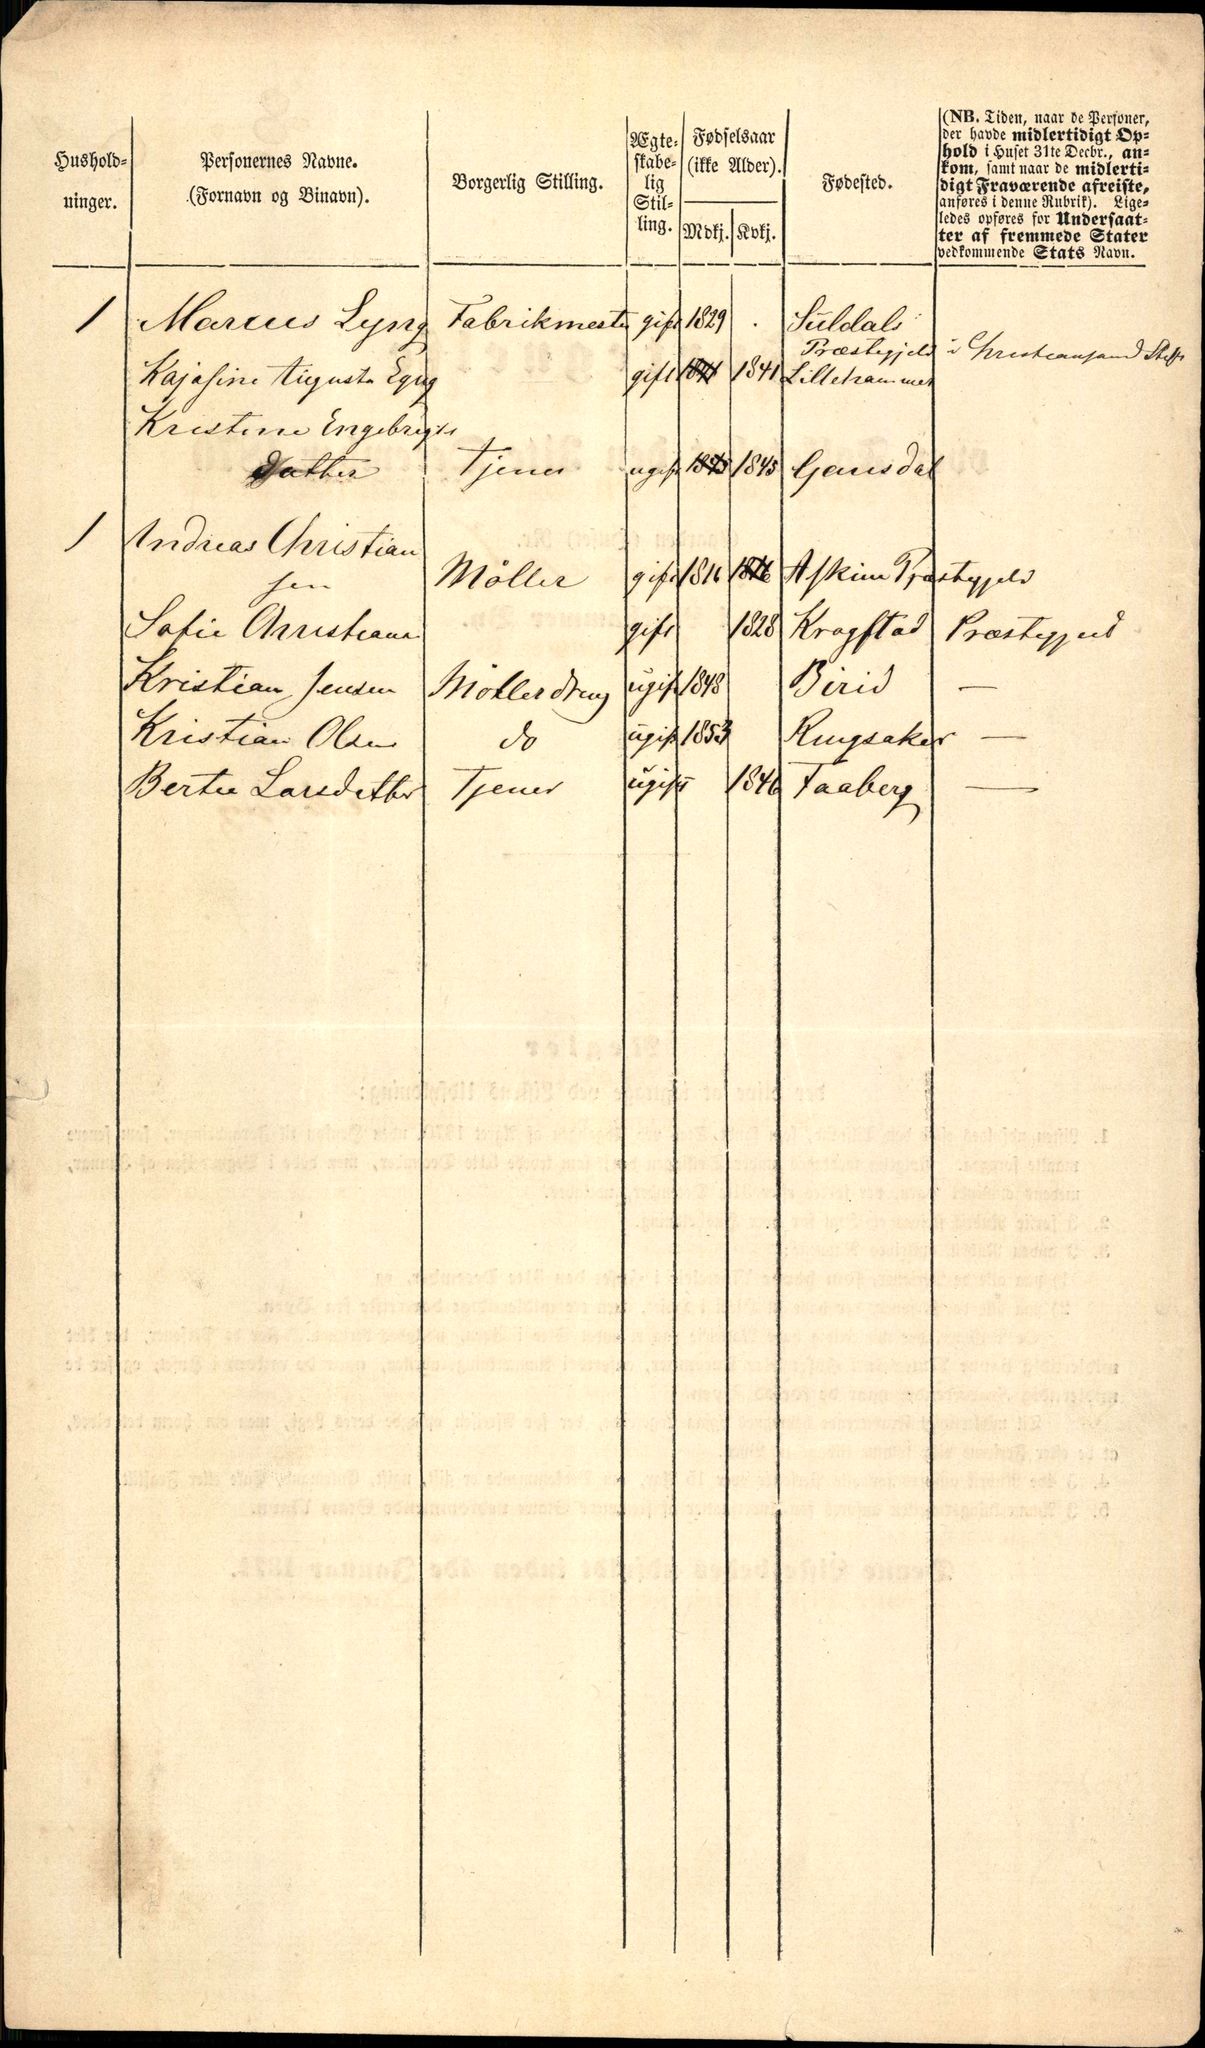 Hushold-
ninger.
Personernes Navne.
(Fornavn og Binavn).
Borgerlig Stilling.
Ægte-
skabe-
lig
Stil-
ling.
Fødselsaar
(ikke Alder).
Mdkj. Kvkj.
Fødested.
(NB. Tiden, naar de Personer,
der havde midlertidigt Op-
hold i Huset 31te Decbr., an-
kom, samt naar de midlerti-
digt Fraværende afreiste,
anføres i denne Rubrik). Lige-
ledes opføres for Undersaat-
ter af fremmede Stater
vedkommende Stats Navn.
1 Marcus Lyng Fabrikmester gift 1829 Suldals
Præstegjeld i Christiansand Stift
Kajasine Augusta Lyng gift 1841 1841 Lillehammer
Kristine Engebrigts
datter Tjener ugift 1845 1845 Gausdal
1 Andreas Christian
sen Möller gift 1816 1816 Askim Præstegjeld
Sofie Christiana gift 1828 Krogstad Præstegjeld
Kristian Jensen Möllerdreng ugift 1848 Birid —
Kristian Olsen do ugift 1853 Ringsaker —
Berte Larsdatter Tjener ugift 1846 Faaberg —